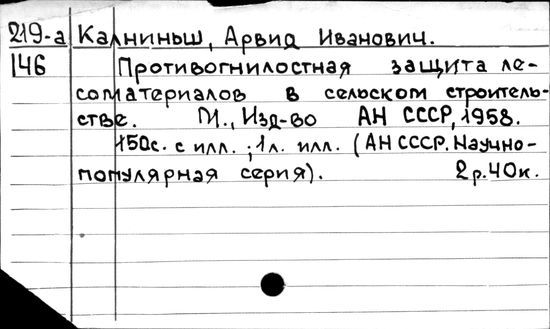 219-а Калниньш, Арвид Иванович.
146 Противогнилостная защита ле-
соматериалов в сельском строитель-
стве. М., Изд-во АН СССР, 1958.
150с. с илл.; 1л. илл. (АН СССР. Научно-
популярная серия). 2р.40к.